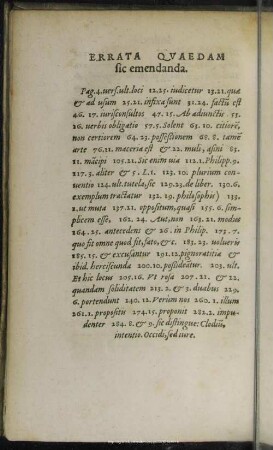 ERRATA QVAEDAM
sic emendanda.
Pag.4.uers.ult.loci 12.25.iudicetur 13.21.quæ
& ad usum 25.21.infixa sunt 31.24. factũ est
46. 17. iurisconsultos 47.15. Ab adiunctis 55.
26. uerbis obligatio 57.5. Solent 63.10. citiorẽ,
non certiorem 64.23. possessionem 68.8. tamẽ
arte 76.11. maceria est & 22. muli, asini 83.
11. mãcipi 105.21. Sic enim uia 112.1. Philipp.9.
217.3. aliter & 5. L.1. 123.10. plurium con=
uentio 124.ult.tutela,sic 129.23.de liber. 130.6.
exemplum tractatur 132.19. philosophie) 133.
2.ut muta 137.21. oppositum,quasi 155.6.sim=
plicem esse. 162.24. Aut,non 163.21. modus
164.25. antecedens & 26. in Philip. 173.7.
quo fit omne quod fit,fato,&c. 183.23. uolueris
185.15. & excusantur 191.12.pigneratitia &
ibid. herciscunda 200.10. possideatur. 203.ult.
Et hic locus 205.16. Vt rosa 207.21. & 22.
quandam soliditatem 213.2. & 3. duabus 229.
6. portendunt 240.12. Verùm nos 260.1. illum
261.1. propositis 274.15. proponit 282.2. impu=
denter 284.8.& 9. sic distingue: Clodiũ,
intentio. Occidi,sed iure.